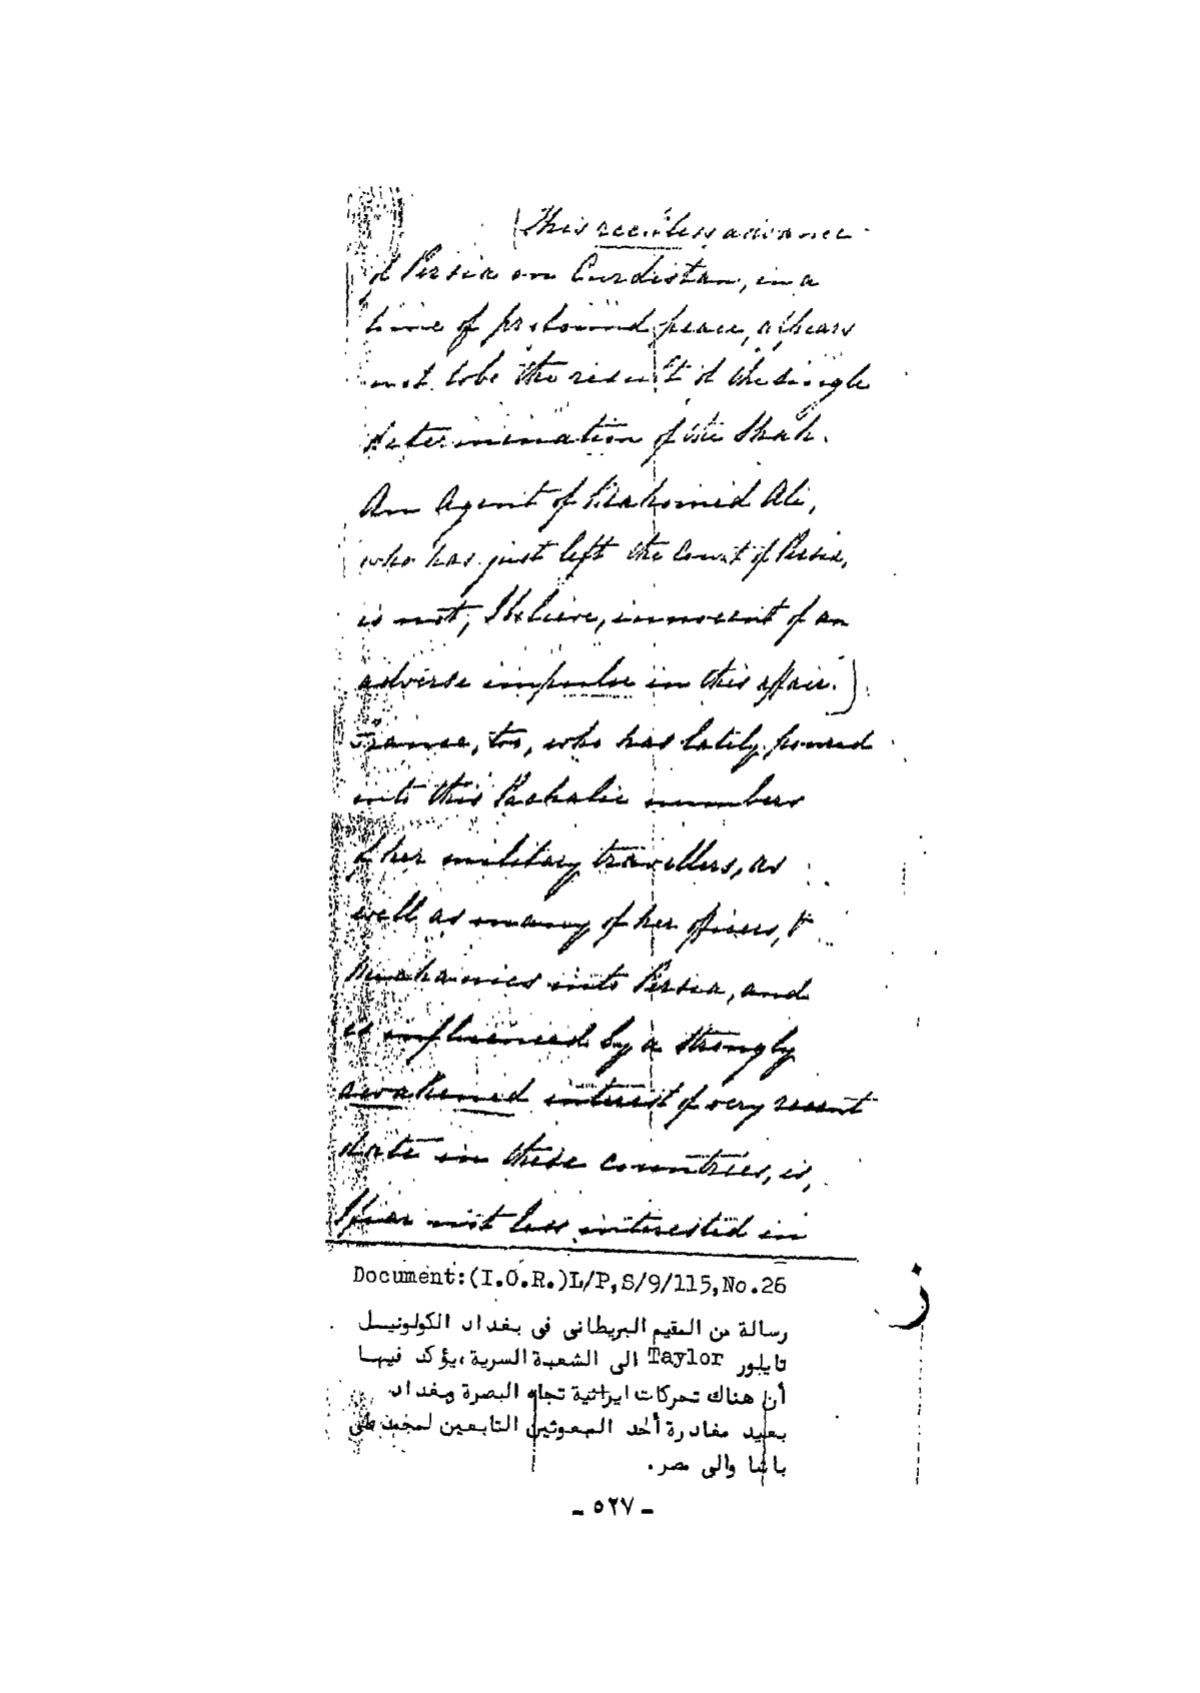 This reckless advance
of Persia on Curdistan, in a
time of profound peace, appears
not to be the result of the single
determination of the Shah.
An Agent of Mahomed Ali,
who has just left the Court of Persia,
is not, I believe, innocent of an
adverse impulse in this affair.)
France, too, who has lately poured
into this Pachalic numbers
of her military travellers, as
well as many of her officers, &
Mechanics into Persia, and
is influenced by a strongly
awakened interest of very recent
date in these countries, is,
I fear not less interested in
Document:(I.O.R.)L/P,S/9/115,No.26
رسالة من المقيم البريطانى فى بغداد الكولونيل
تايلور Taylor الى الشعبة السرية ،يؤكد فيها
أن هناك تحركات ايرانية تجاه البصرة وبغداد
بعيد مغادرة أحد المبعوثين التابعين لمحمد على
باشا والى مصر.
- ٥٢٧ -
ز